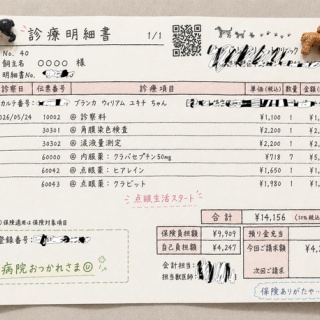 診療明細書
1/1
No. 40
飼主名 ○○○○ 様
明細書No.
診察日 伝票番号 診療項目 単価(税込) 数量 金額
カルテ番号: ブランカ ウィリアム ユキチ ちゃん
2026/05/24 10002 @ 診察料 ¥1,100 1
30301 @ 角膜染色検査 ¥2,200 1
30302 @ 涙液量測定 ¥2,200 1
@ 内服薬: フラバセプチン50mg ¥718 7
60042 @ 点眼薬: ヒアレイン ¥1,650 1
60043 @ 点眼薬: クラビット ¥1,980 1
点眼生活スタート
合計 ¥14,156
保険適用は保険対象項目
保険負担額 ¥9,909 預り金充当
自己負担額 ¥4,247 今回ご請求額
登録番号:
次回ご請求
会計担当:
担当獣医師:
病院おつかれさま
保険ありがたや